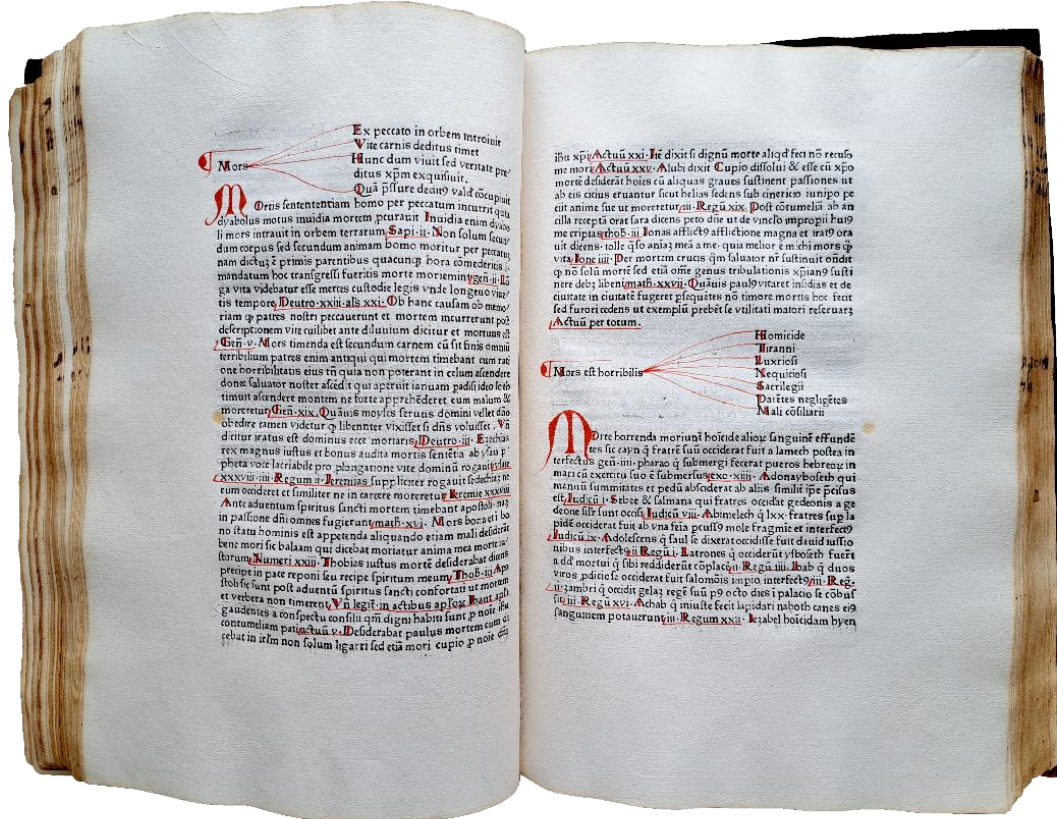 Ex peccato in orbem introiuit
Vite carnis deditus timet
Mors
Hunc dum viuit sed veritate pre
ditus xp̄m exquisiuit.
Quā p̄ssure
Ortis sentententiam homo per peccatum incurrit quia
dyabolus motus inuidia mortem ꝓcurauit Inuidia enim dyabo
li mors intrauit in orbem terrarum Sapi·ii· Non solum secun
dum corpus sed secundum animam homo moritur per peccatū
nam dictuꝫ ē primis parentibus quacunqꝫ hora cōmederitis ī
mandatum hoc transgressi fueritis morte moriemini gen·ii·
ga vita videbatur esse merces custodie legis vnde longeuo viue
tis tempore Deutro·xxiii·als̄ xxi· Ob hanc causam ob memo
riam ꝙ patres nostri peccauerunt et mortem incurrerunt post
descriptionem vite cuilibet ante diluuium dicitur et mortuus est
Geñ·v· Mors timenda est secundum carnem cū sit finis omniū
terribilium patres enim antiqui qui mortem timebant cum rati
one horribilitatis eius tñ quia non poterant in celum ascendere
donec saluator noster ascēdit qui aperuit ianuam padisi ideo loth
timuit ascendere montem ne forte apprehēderet eum malum &
moreretur Geñ·xix· Quāuis moyses seruus domini vellet dño
obedire tamen videtur ꝙ libennter vixisset si dñs voluisset· Vñ
dicitur iratus est dominus ecce moriaris Deutro·iii· Ezechias
rex magnus iustus et bonus audita mortis sentētia ab ysaya p
pheta voce lacriabile pro plongatione vite dominū rogauit ysaie
xxxviii·iiii·Regum ii· Ieremias suppliciter rogauit sedechiā ne
eum occideret et similiter ne in carcere moreretur Ieremie xxxviii
Ante aduentum spiritus sancti mortem timebant apostoli· nā
in passione dñi omnes fugierunt math·xvi· Mors bona et ī bo
no statu hominis est appetenda aliquando etiam mali desiderāt
bene mori sic balaam qui dicebat moriatur anima mea morte iu
storum Numeri xxiii· Thobias iustus mortē desiderabat dicens
precipe in pace reponi seu recipe spiritum meum Thob·iii Apo
stoli sic sunt post aduentū spiritus sancti confortati ut mortem
et verbera non timerent Vñ legit̄ in actibus ap̄loꝝ Ibant apl̄i
gaudentes a conspectu consilii qm̄ digni habiti sunt ꝓ noīe ihū
contumeliam pati actuū v· Desiderabat paulus mortem cum di
cebat in irl̄m non solum ligari sed etiā mori cupio ꝓ noīe dñi
ihū xp̄i Actuū xxi· Itē dixit si dignū morte aliqd feci nō recuso
me mori Actuū xxv· Alubi dixit Cupio dissolui & esse cū xp̄o
mortē desiderāt hoīes cū aliquas graues sustinent passiones ut
ab eis citius eruantur sicut helias sedens sub cinericio iunipo pe
ciit anime sue ut moreretur iii·Regū xix· Post cōtumeliā ab an
cilla receptā orat sara dicens peto dñe ut de vinclo impropii huiꝯ
me eripias thob·iii Ionas afflictꝯ afflictione magna et irat̄ ora
uit dicens· tolle q̄so aniaꝫ meā a me· quia melior ē michi mors ꝙ̄
vita Ione iiii· Per mortem crucis qm̄ saluator nr̄ sustinuit oñdit̄
ꝙ nō solū mortē sed etiā om̄e genus tribulationis xp̄ianꝯ susti
nere debꝫ libent̄ math·xxvii· Quāuis paulꝯ vitaret insidias et de
ciuitate in ciuitatē fugeret ꝑsequētes nō timore mortis hoc fecit
sed furori cedens ut exemplū prebēt se vtilitati maiori reseruarꝫ
Actuū per totum.
Homicide
Tiranni
Luxriosi
Mors est horribilis
Nequiciosi
Sacrilegii
Parētes negligētes
Mali cōsiliarii
Orte horrenda moriunt̄ hoīcide alioꝝ sanguinē effundē
tes sic cayn q̄ fratrē suū occiderat fuit a lamech postea in
terfectus geñ·iiii· pharao q̄ submergi fecerat pueros hebreoꝝ in
mari cū exercitu suo ē submersus exo·xiiii· Adonaybosech qui
manuū summitates et pedū absciderat ab aliis similit̄ ip̄e p̄cisus
est Iudicū i· Sebee & salmana qui fratres occidāt gedeonis a ge
deone sil̄r sunt occisi Iudicū viii· Abimelech q̄ lxx· fratres sup la
pidē occiderat fuit ab vna feīa pcussꝯ mole fragmīe et interfectꝯ
Iudicū ix· Adolescens q̄ saul se dixerat occidisse fuit dauid iussio
nibus interfectꝯ ii·Regū i· Latrones q̄ occiderūt ysboseth fuer̄t
a dd̄ mortui q̄ sibi reddiderūt cōplacē ii·Regū iiii· Ioab q̄ duos
viros ꝓdicie occiderat fuit salomōis impio interfectꝯ iii·Reg·
ii· zambri q̄ occidit gelaꝫ regē suū pꝯ octo dies ī palacio se cōbus
sit iii·Regū xvi· Achab q̄ iniuste fecit lapidari naboth canes eiꝯ
sanguinem potauerunt iii·Regum xxii· Iezabel hoīcidam hyen